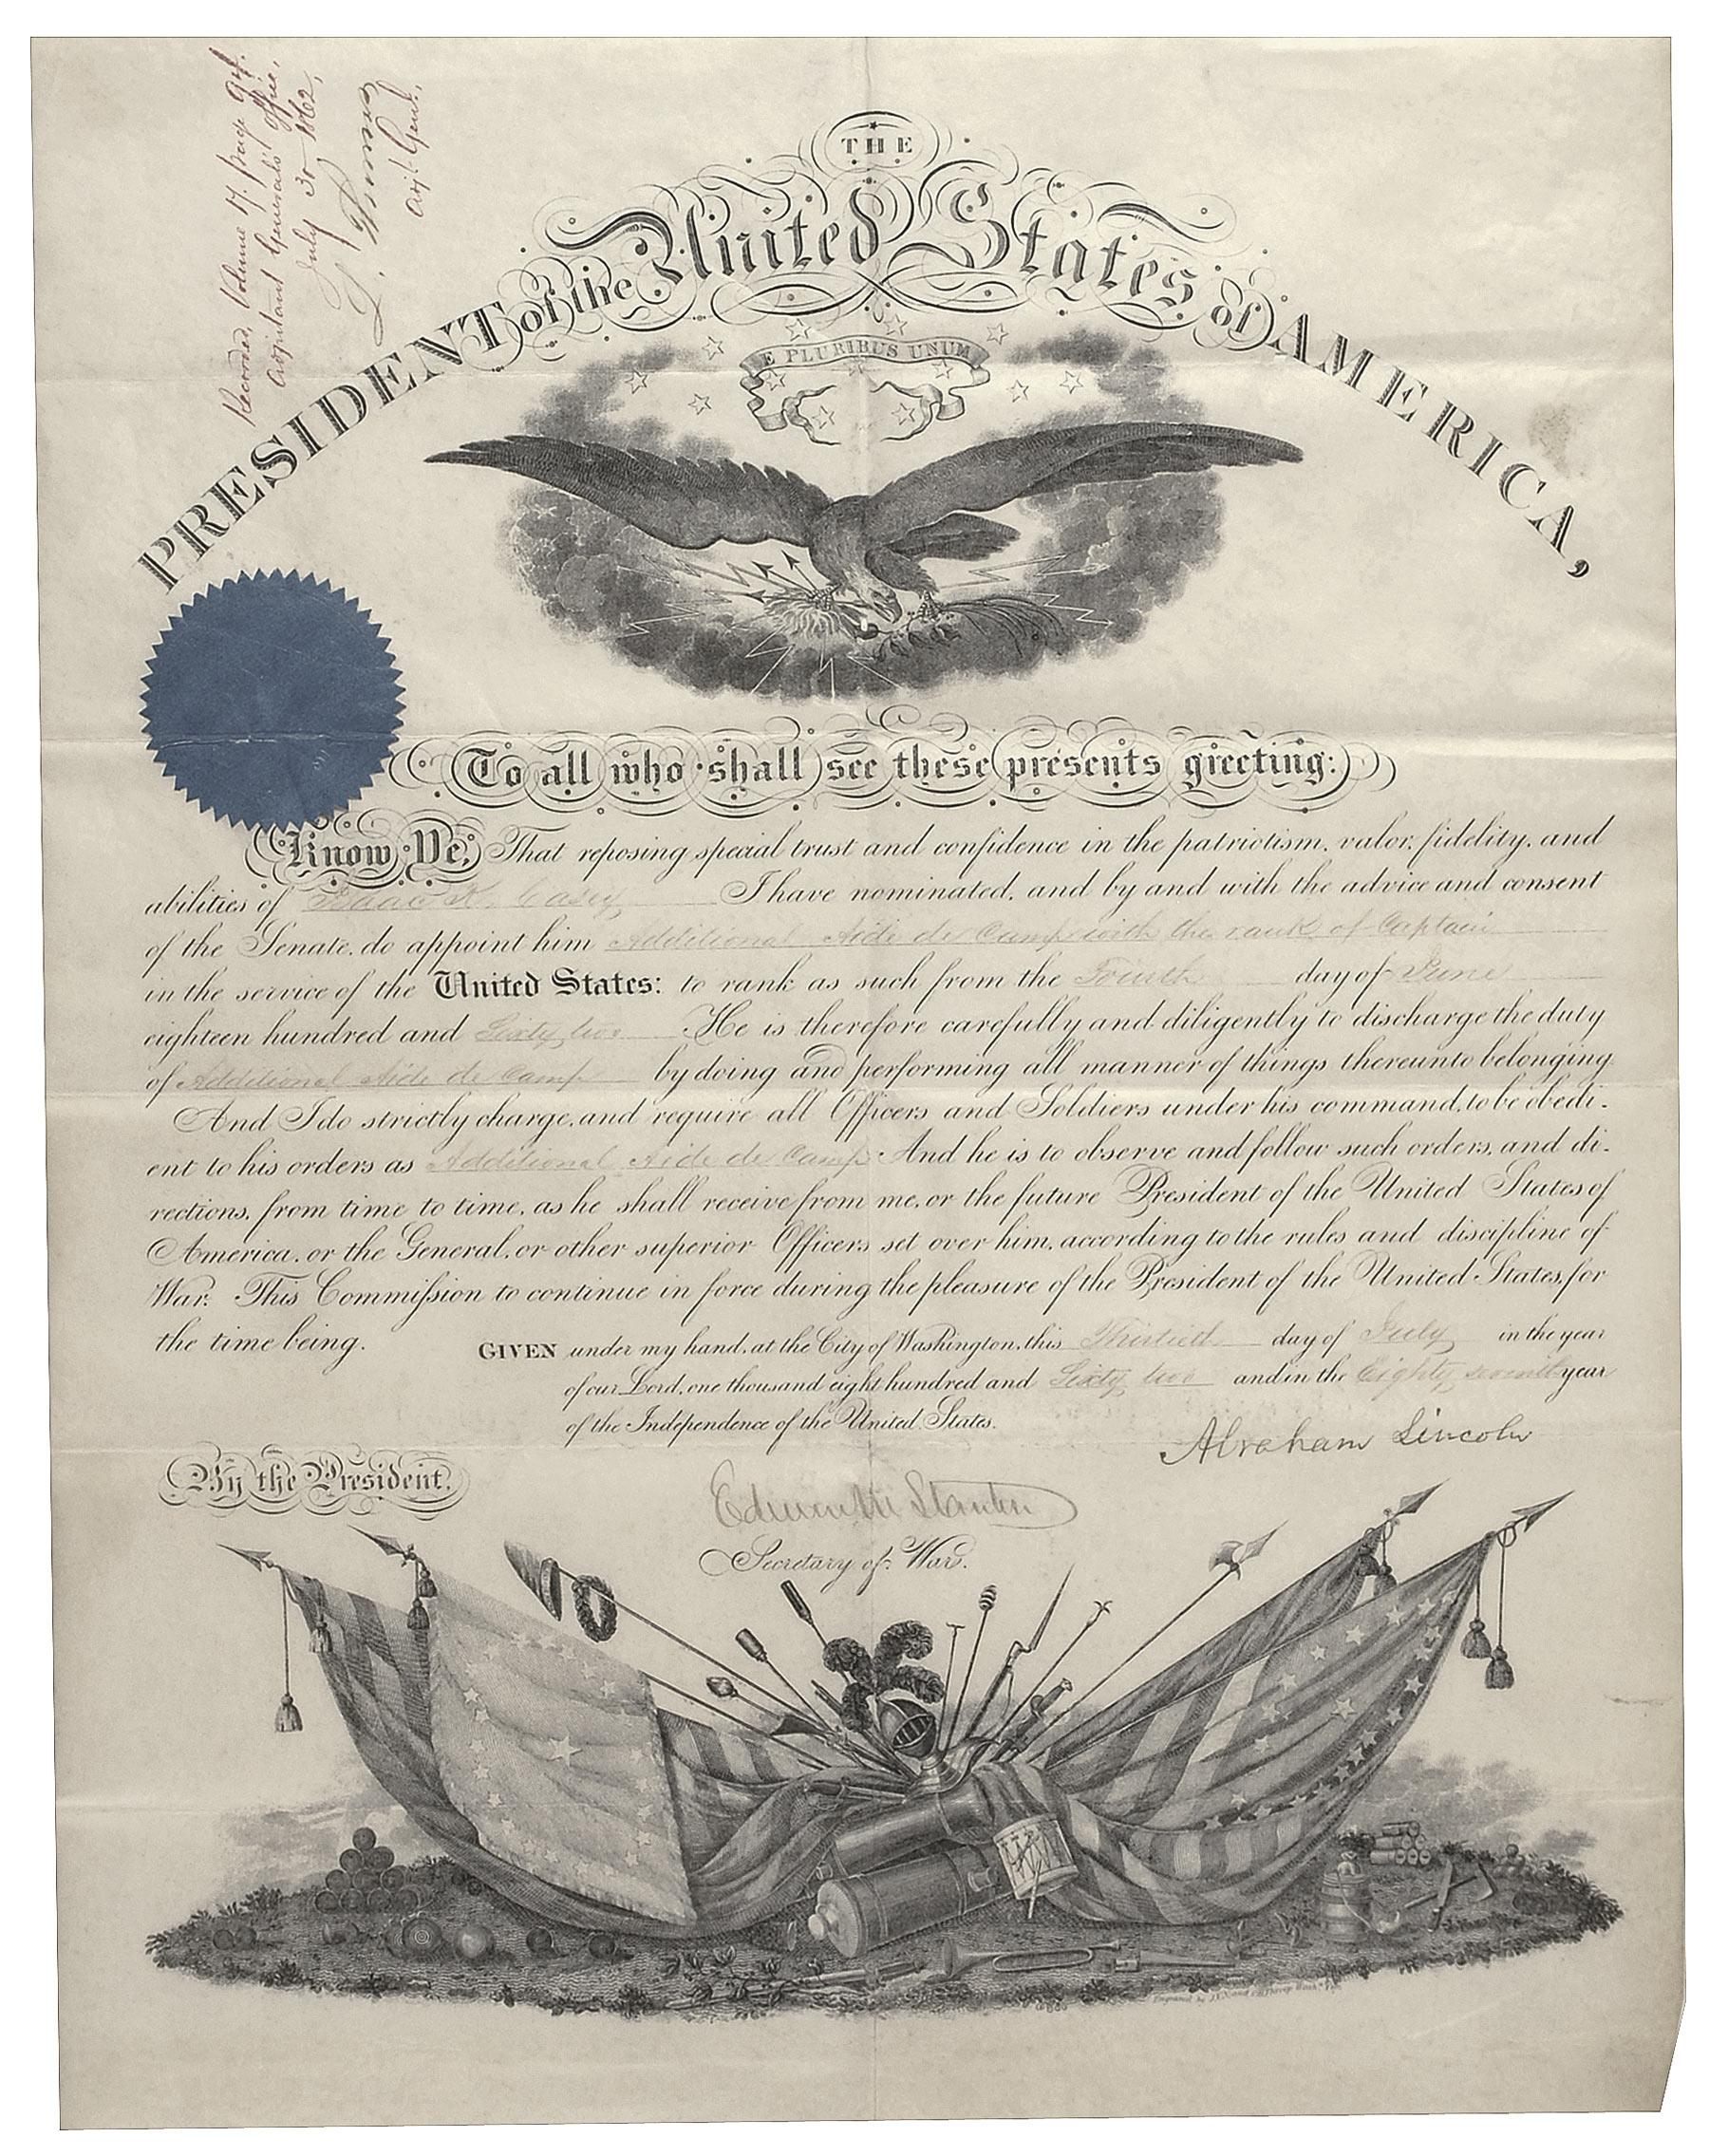 Recorded, Volume 7. page
Adjutant General's Office,
July 30 1862,
L. Thomas
Adj't Genl.,
THE
PRESIDENT of the United States of AMERICA,
E PLURIBUS UNUM
To all who shall see these presents greeting:
Know Ye, That reposing special trust and confidence in the patriotism, valor, fidelity, and
abilities of Isaac K. Casey I have nominated, and by and with the advice and consent
of the Senate, do appoint him Additional Aide de Camp with the rank of Captain
in the service of the United States: to rank as such from the Fourth day of June
eighteen hundred and Sixty two He is therefore carefully and diligently to discharge the duty
of Additional Aide de Camp by doing and performing all manner of things thereunto belonging.
And I do strictly charge, and require all Officers and Soldiers under his command, to be obedi-
ent to his orders as Additional Aide de Camp And he is to observe and follow such orders, and di-
rections, from time to time, as he shall receive from me, or the future President of the United States of
America, or the General, or other superior Officers set over him, according to the rules and discipline of
War. This Commission to continue in force during the pleasure of the President of the United States, for
the time being.
GIVEN under my hand, at the City of Washington, this Thirtieth day of July in the year
of our Lord, one thousand eight hundred and Sixty two and in the Eighty seventh year
of the Independence of the United States.
Abraham Lincoln
By the President.
Edwin M Stanton
Secretary of War.